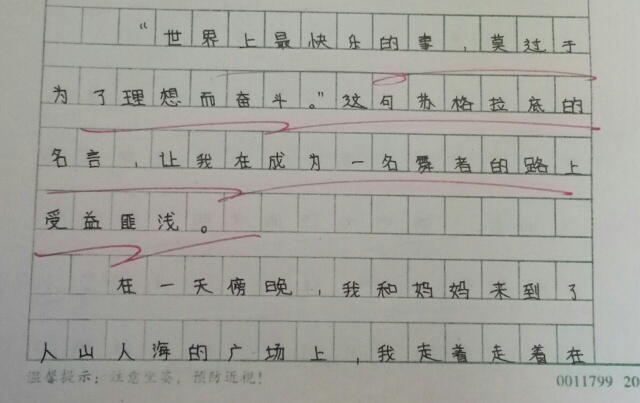 “世界上最快乐的事，莫过于
为了理想而奋斗。”这句苏格拉底的
名言，让我在成为一名舞者的路上
受益匪浅。
在一天傍晚，我和妈妈来到了
人山人海的广场上，我走着走着在
温馨提示：注意坐姿，预防近视！
0011799 20